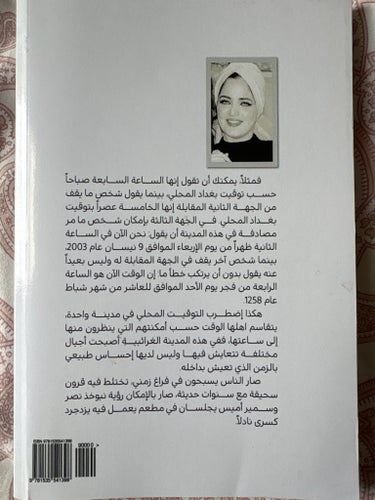 فمثلاً، يمكنك أن تقول إنها الساعة السابعة صباحاً
حسب توقيت بغداد المحلي، بينما يقول شخص ما يقف
من الجهة الثانية المقابلة إنها الخامسة عصراً بتوقيت
بغداد المحلي. في الجهة الثالثة بإمكان شخص ما مر
مصادفة في هذه المدينة أن يقول: نحن الآن في الساعة
الثانية ظهراً من يوم الإربعاء الموافق 9 نيسان عام 2003,
بينما شخص آخر يقف في الجهة المقابلة له وليس بعيداً
عنه يقول بدون أن يرتكب خطأ ما: إن الوقت الآن هو الساعة
الرابعة من فجر يوم الأحد الموافق للعاشر من شهر شباط
عام 1258.
هكذا إضطرب التوقيت المحلي في مدينة واحدة،
يتقاسم اهلها الوقت حسب أمكنتهم التي ينظرون منها
إلى ساعاتها، ففي هذه المدينة الغرائبية أصبحت أجيال
مختلفة تتعايش فيها وليس لديها إحساس طبيعي
بالزمن الذي تعيش بداخله.
صار الناس يسبحون في فراغ زمني، تختلط فيه قرون
سحيقة مع سنوات حديثة، صار بالإمكان رؤية نبوخذ نصر
وسمير أميس يجلسان في مطعم يعمل فيه يزدجرد
كسرى نادلاً
ISBN 9781535541398
90000 >
9 781535 541398